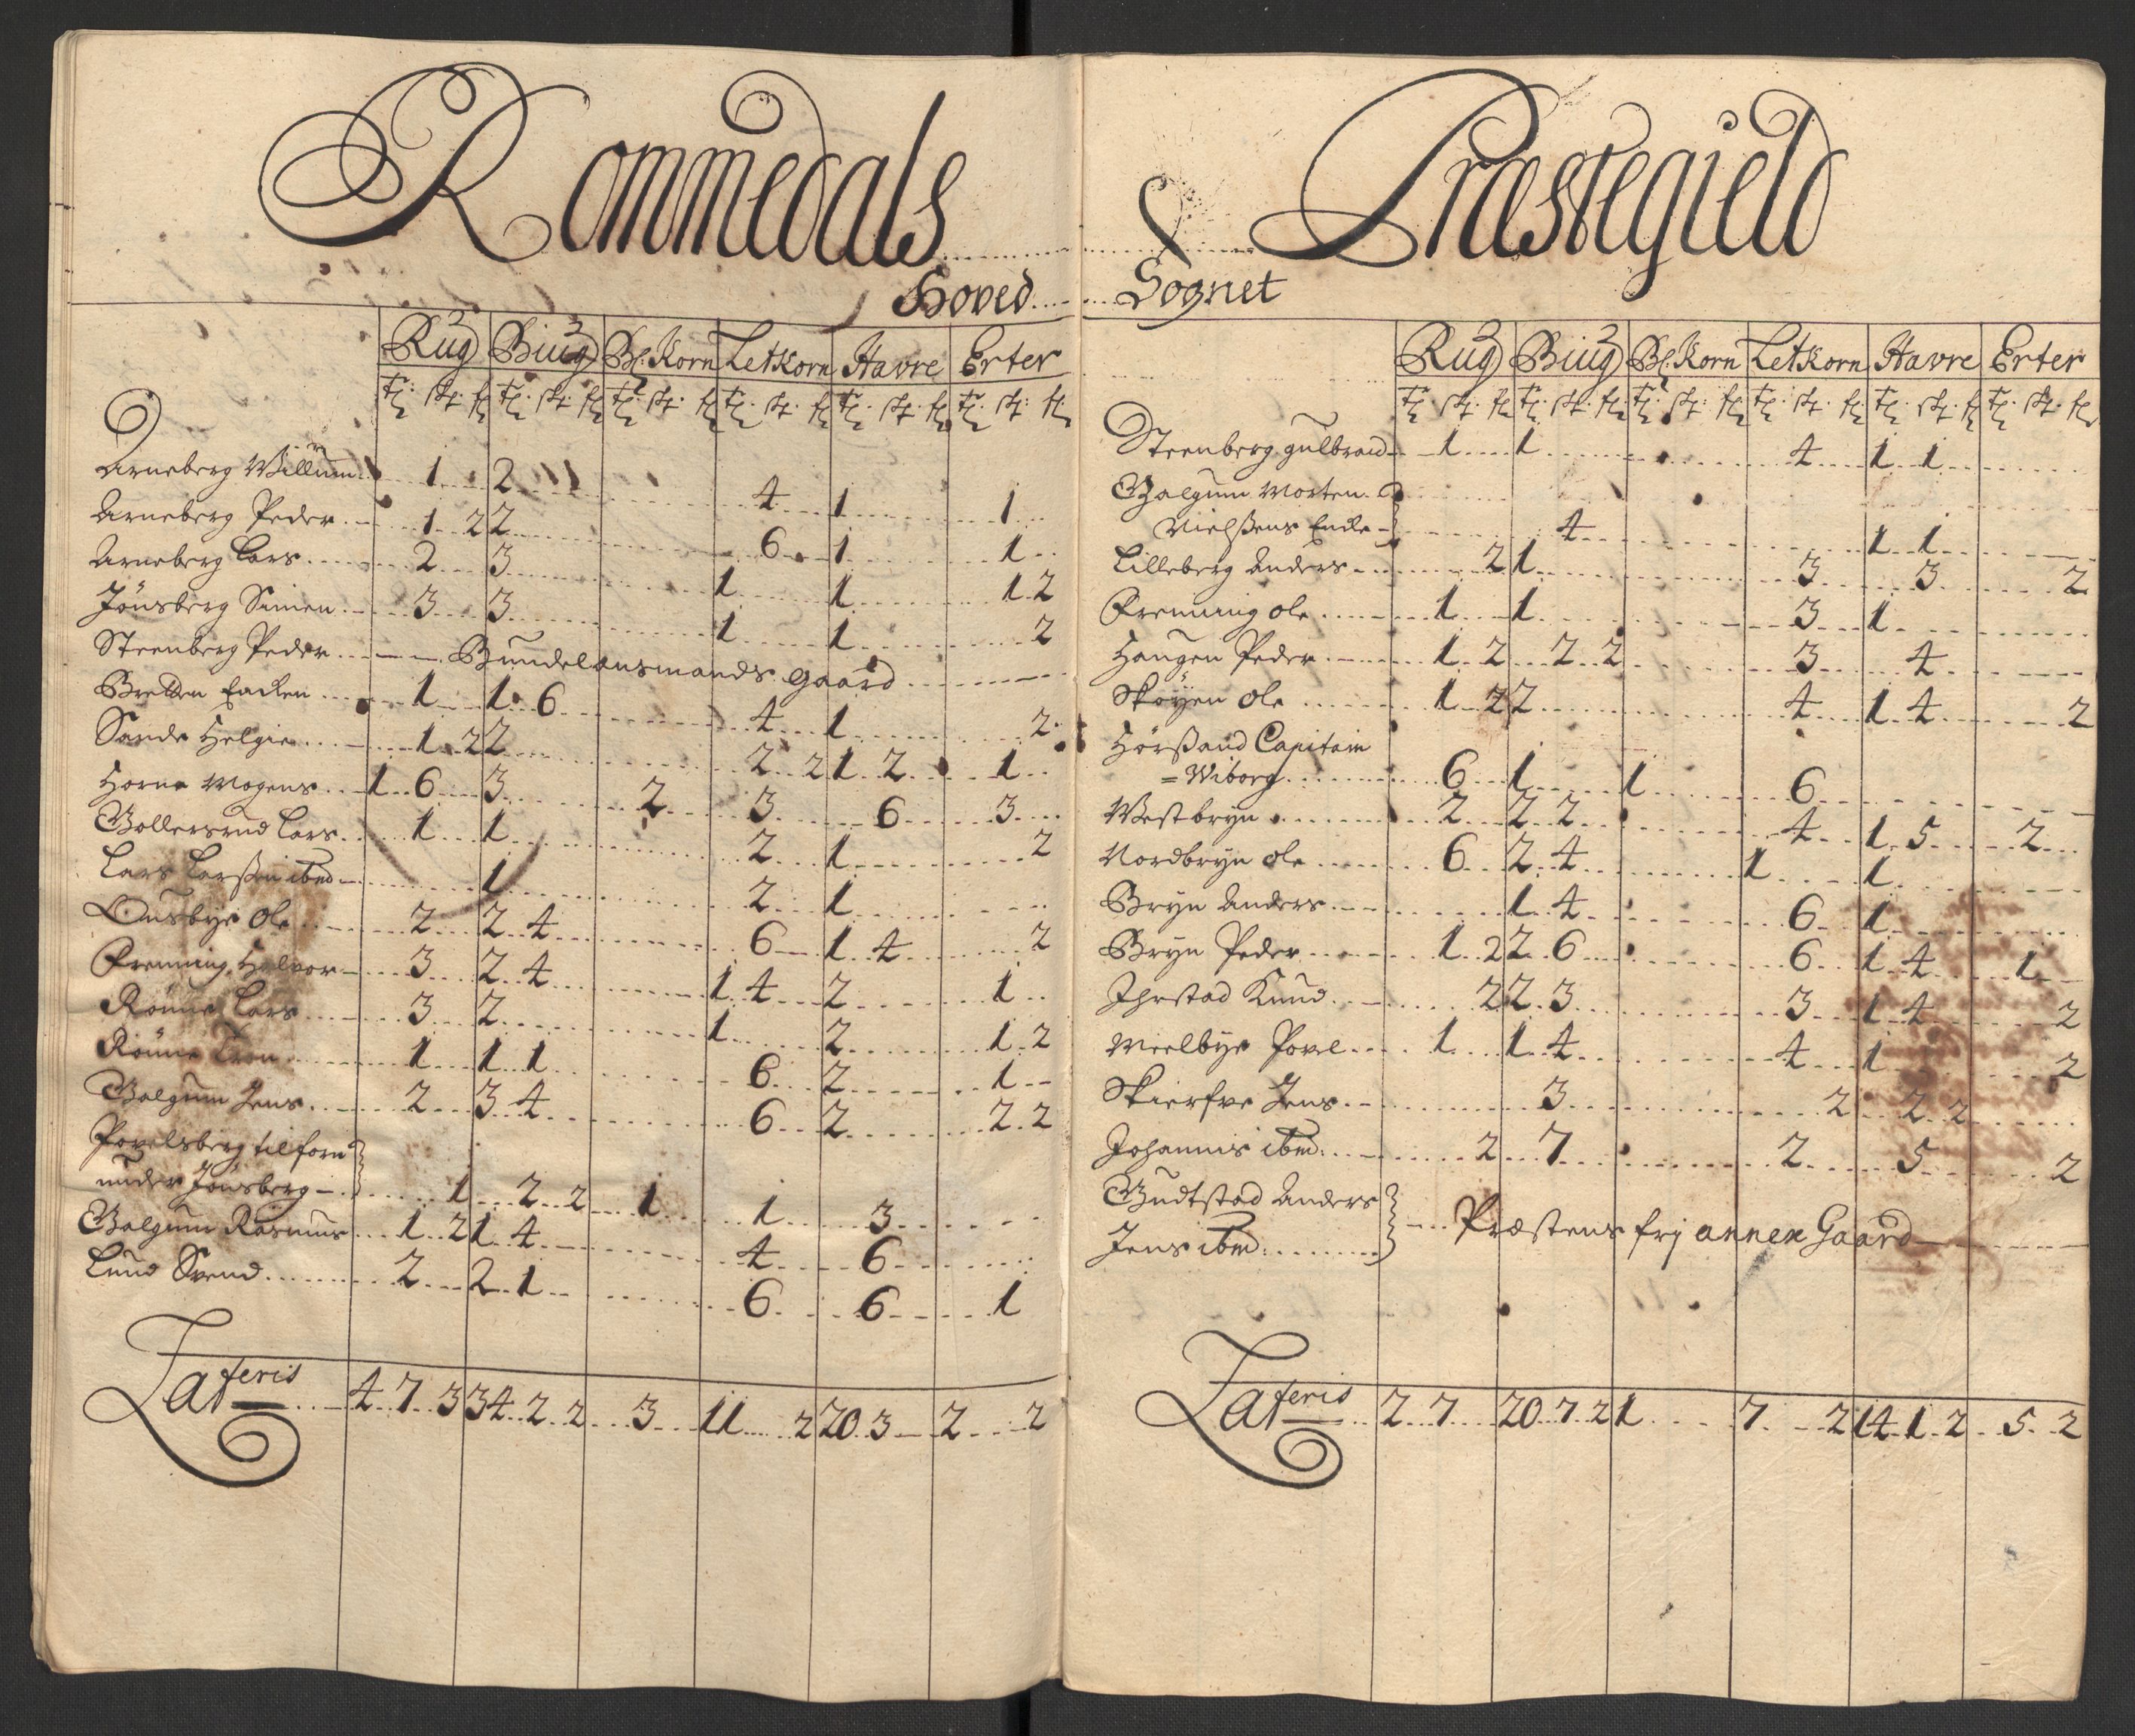 Rommedals
Hoved
Rug Biug Bl. Korn Letkorn Havre Erter
Arneberg Willum 1 2 4 1 1
Arneberg Peder 1 2 2 6 1 1
Arneberg Lars 2 3 1 1 1 2
Jönsberg Simen 3 3 1 1 2
Steenberg Peder Bundelensmands gaard
Bretten 1 1 6 4 1 2
Sande Helgie 1 2 2 2 2 1 2 1
Horne Mogens 1 6 3 2 3 6 3
Bollersrud Lars 1 1 2 1 2
Lars Larßen ibm 1 2 1
Ousbye Ole 2 2 4 6 1 4 2
Frenning Halvor 3 2 4 1 4 2 1
Rönne Lars 3 2 1 2 1 2
Rönne 1 1 1 6 2 1
Balgum Jens 2 3 4 6 2 2 2
Povelsberg tilforn
under Jönsberg 1 2 2 1 1 3
Balgum Rasmus 1 2 1 4 4 6
Lund Svend 2 2 1 6 6 1
Lateris 4 7 3 34 2 2 3 11 2 20 3 2 2
& Præstegield
Sognet
Rug Biug Bl. Korn Letkorn Havre Erter
Steenberg gulbrand 1 1 4 1 1
Balgum Morten
Nielßens Encke 4 1 1
Lilleberg Anders 2 1 3 3 2
Frenning ole 1 1 3 1
Haugen Peder 1 2 2 2 3 4
Skøyen Ole 1 2 2 4 1 4 2
Hörßand Capitain
=Wiborg 6 1 1 6
Westbryn 2 2 2 4 1 5 2
Nordbryn ole 6 2 4 1 1
Bryn Anders 1 4 6 1
Bryn Peder 1 2 2 6 6 1 4 1
Ihrstad Knud 2 2 3 3 1 4 2
Mielbye Povel 1 1 4 4 1 2
Skierfve Jens 3 2 2 2
Johannis ibm 2 7 2 5 2
Budtstad Anders
Jens ibm Præstens frj annex Gaard
Lateris 2 7 20 7 2 1 7 2 14 1 2 5 2